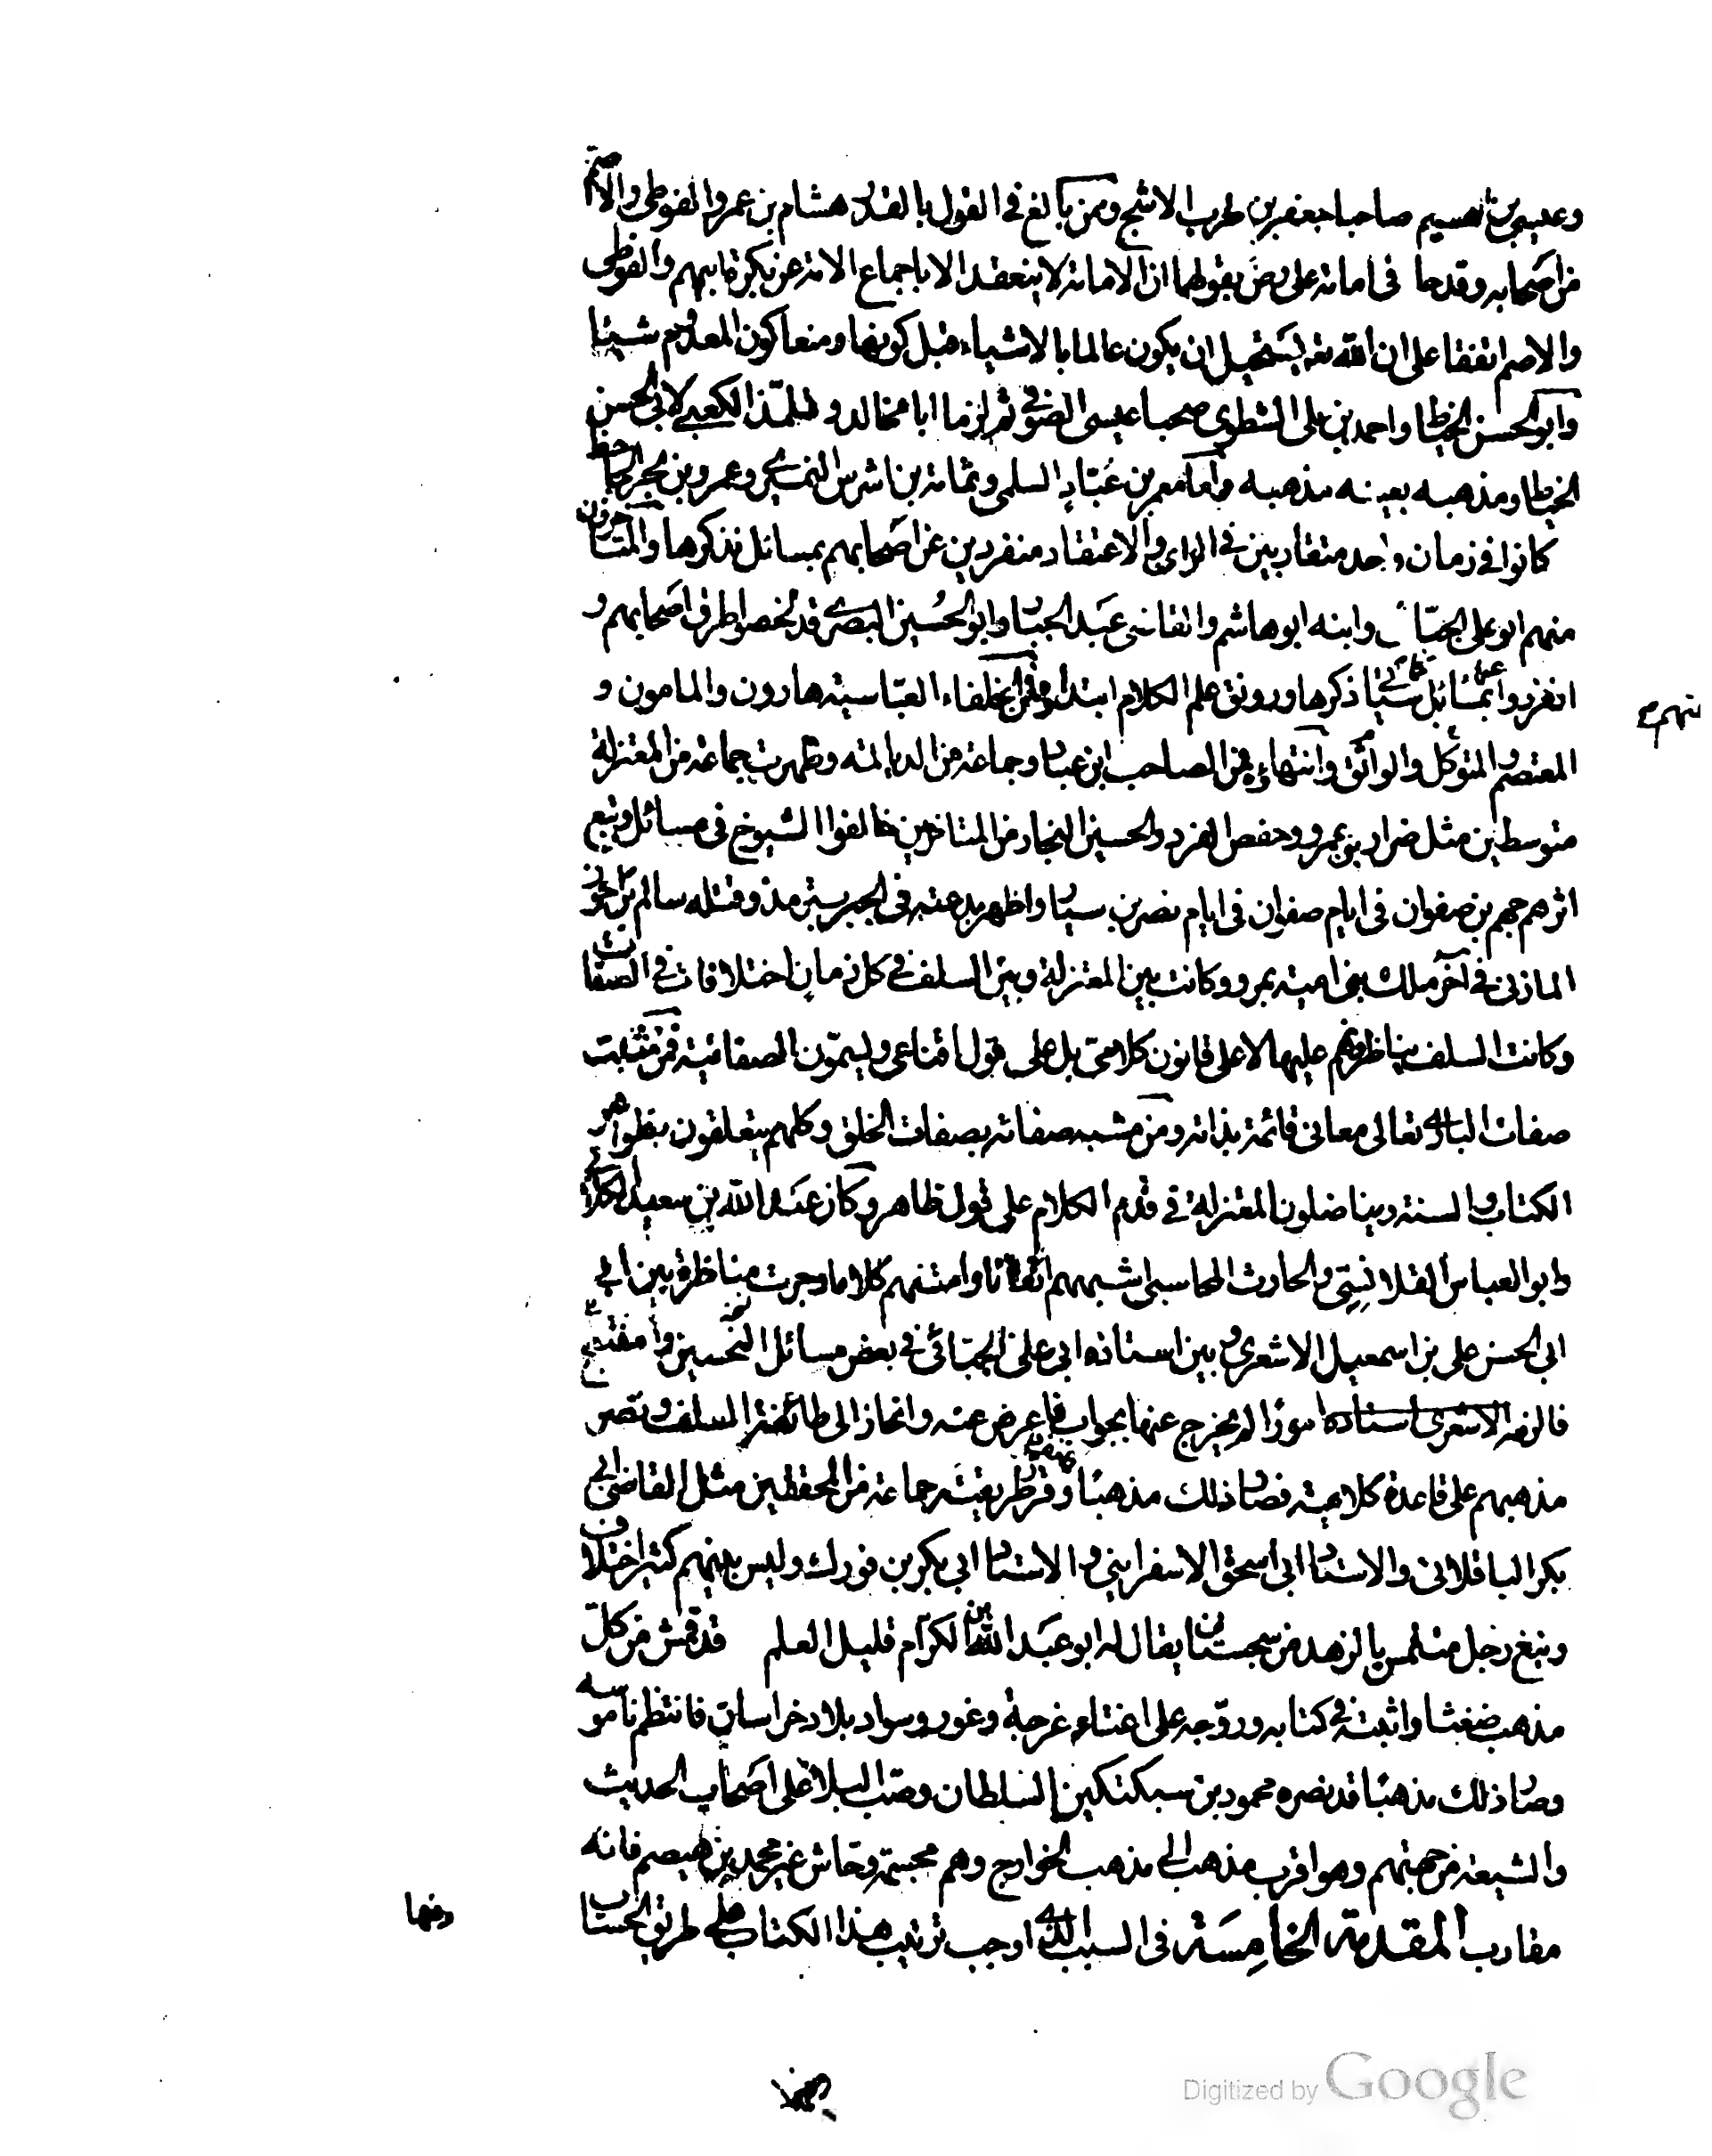 وعيسى بن الهيثم صاحبا جعفر بن حرب الاشج وممن بالغ فى القول بالقدر هشام بن عمرو الفوطى والاصم
من اصحابه وقدحا فى امامة على رض بقولهما ان الامامة لا ينعقد الا باجماع الامة عن بكرة ابيهم والفوطى
والاصم اتفقا على ان الله تعه يستحيل ان يكون عالما بالاشياء قبل كونها ومنعا كون المعدوم شيئا
وابو الحسن الخياط واحمد بن على الشطوى صحبا عيسى الصوفى ثم لزما ابا مخالد وتلمّذ الكعبى لابى الحسن
الخياط ومذهبه بعينه مذهبه واما معمر بن عبّاد السلمى وثمامة بن اشرس النميرى وعمرو بن بحر الجاحظ
كانوا فى زمان واحد متقاربين فى الراى والاعتقاد منفردين عن اصحابهم بمسائل نذكرها والمتاخرون
منهم ابو على الجبّائى وابنه ابو هاشم والقاضى عبد الجبار وابو الحسين البصرى قد لخصوا طرق اصحابهم و
انفردوا عنهم بمسائل سياتى ذكرها ورونق علم الكلام ابتداوه من الخلفاء العبّاسية هارون والمامون و
المعتصم والمتوكل والواثق وانتهاءه من الصاحب ابن عباد وجماعة من الديالمة وظهرت جماعة من المعتزلة
متوسطين مثل ضرار بن عمرو وحفص الفرد والحسين النجار من المتاخرين خالفوا الشيوخ فى مسائل ونبع
اثرهم جهم بن صفوان فى ايام صفوان فى ايام نصر بن سيار واظهر بدعته فى الجبر بترمذ وقتله سالم بن احوز
المازنى فى آخر ملك بنى امية بمرو وكانت بين المعتزلة وبين السلف فى كل زمان اختلافات فى الصفات
وكانت السلف يناظرونهم عليها لا على قانون كلامى بل على قول اقناعى ويسمّون الصفاتية فمن مثبت
صفات البارى تعالى معانى قائمة بذاته ومن مشبه صفاته بصفات الخلق وكلهم يتعلقون بظواهر
الكتاب والسنة ويناضلون المعتزلة فى قدم الكلام على قول ظاهر وكان عبد الله بن سعيد الكلابى
وابو العباس القلانسى والحارث المحاسبى اشبههم اتقانا وامتنهم كلاما وجرت مناظرة بين ابى
ابى الحسن على بن اسمعيل الاشعرى وبين استاذه ابى على الجبّائى فى بعض مسائل التحسين والتقبيح
فالزم الاشعرى استاده امورًا لم يخرج عنها بجواب فاعرض عنه وانحاز الى طائفة السلف ونصر
مذهبهم على قاعدة كلامية فصار ذلك مذهبًا وقرر طريقته جماعة من المحققين مثل القاضى ابى
بكر الباقلانى والاستاد ابى اسحق الاسفراينى والاستاد ابى بكر بن فورك وليس بينهم كثير اختلاف
ونبغ رجل متلمس بالزهد من سجستان يقال له ابو عبد الله بن الكرّام قليل العلم قد قمش من كل
مذهب ضغثا واثبته فى كتابه وروّجه على اغتناء غرجة وغور وسواد بلاد خراسان فانتظم ناموسه
وصار ذلك مذهبًا قد نصره محمود بن سبكتكين السلطان وصبّ البلاء على اصحاب الحديث
والشيعة من جهتهم وهو اقرب مذهب الى مذهب الخوارج وهم مجسمة وحاش غير محمد بن هيصم فانه
مقارب المقدمة الخامسة فى السبب الذى اوجب ترتيب هذا الكتاب على طريق الحساب
وفيها
Digitized by Google